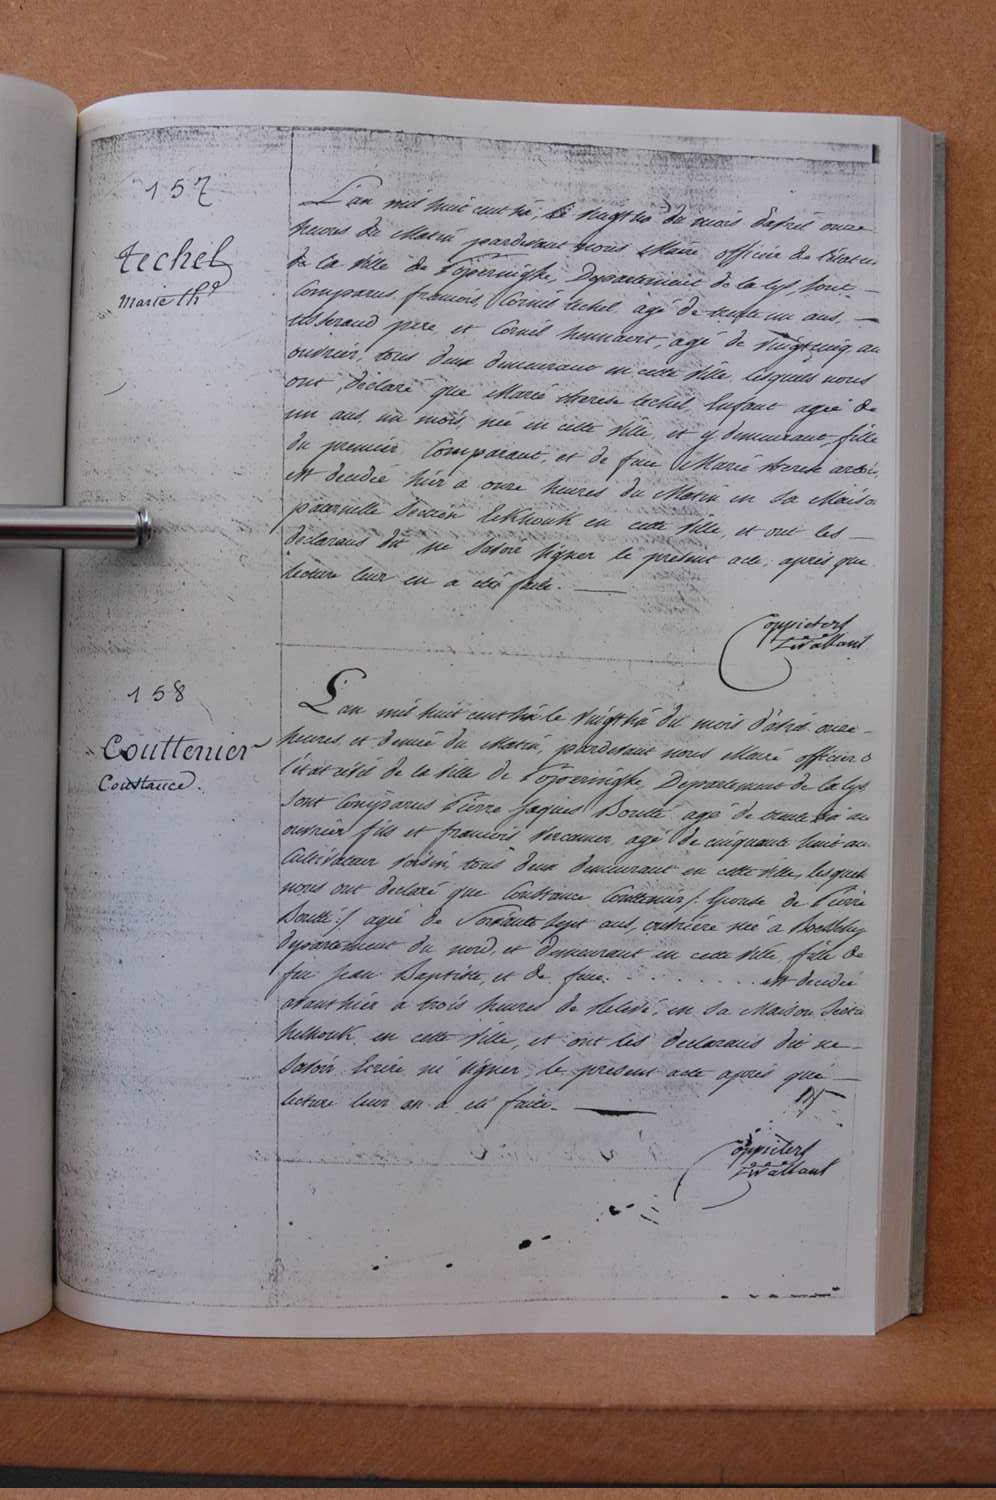 157
techel
Marie th.e
L'an mil huit cent six, le vingt six du mois d'avril onze
heures du Matin pardevant nous Maire officier de l'état
de la Ville de Poperinghe, Departement de la Lys, sont
Comparus francois Cornil techel, agé de trente un ans,
tisserand pere et Cornil hennaert, agé de vingt cinq an
ouvrier, tous deux demeurant en cette Ville, lesquels nous
ont déclaré que Marie therese techel, Enfant agée de
un ans, un mois, née en cette Ville, et y demeurant, fille
du premier Comparant, et de feue Marie therese
est decedée hier a onze heures du Matin en sa Maiso
paternelle Section en cette Ville, et ont les
declarans dit ne savoir signer le present acte, après que
lecture leur en a été faite.
Coppieters
t'Wallant
158
Couttenier
Constance.
L'an mil huit cent six le vingt six du mois d'avril onze
heures et demie du Matin, pardevant nous Maire officier d
l'état civil de la Ville de Poperinghe, Departement de la Lys
sont Comparus Pierre Jaques Boutté agé de trente six an
ouvrier fils et francois Vercamer, agé de cinquante huit an
Cultivateur voisin, tous deux demeurant en cette Ville, lesquels
nous ont declaré que Constance Couttenier /: Epouse de Pierre
Boutté :/ agée de soixante sept ans, ouvrière née à
departement du nord, et demeurant en cette Ville, fille de
feu Jean Baptiste, et de feue . . . . . . . est decedée
avanthier à trois heures de relevé, en sa Maison Secti
en cette Ville, et ont les declarans dit ne
savoir Ecrire ni signer, le present acte après que
lecture leur en a été faite.
Coppieters
t'Wallant